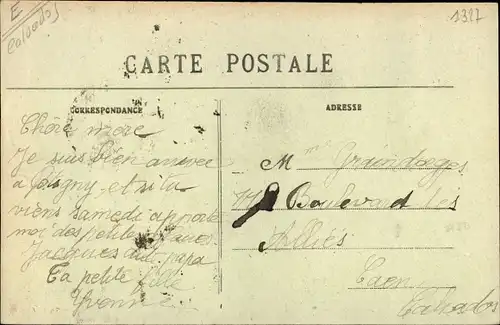 E
Calvados
1327
CARTE POSTALE
CORRESPONDANCE
ADRESSE
Chère mère
Je suis bien arrivée
a et si tu
viens samedi apporte
moi des petites
Jacques papa
Ta petite fille
Yvonne
M me Graindorges
Boulevard des
Alliés
Caen
Calvados